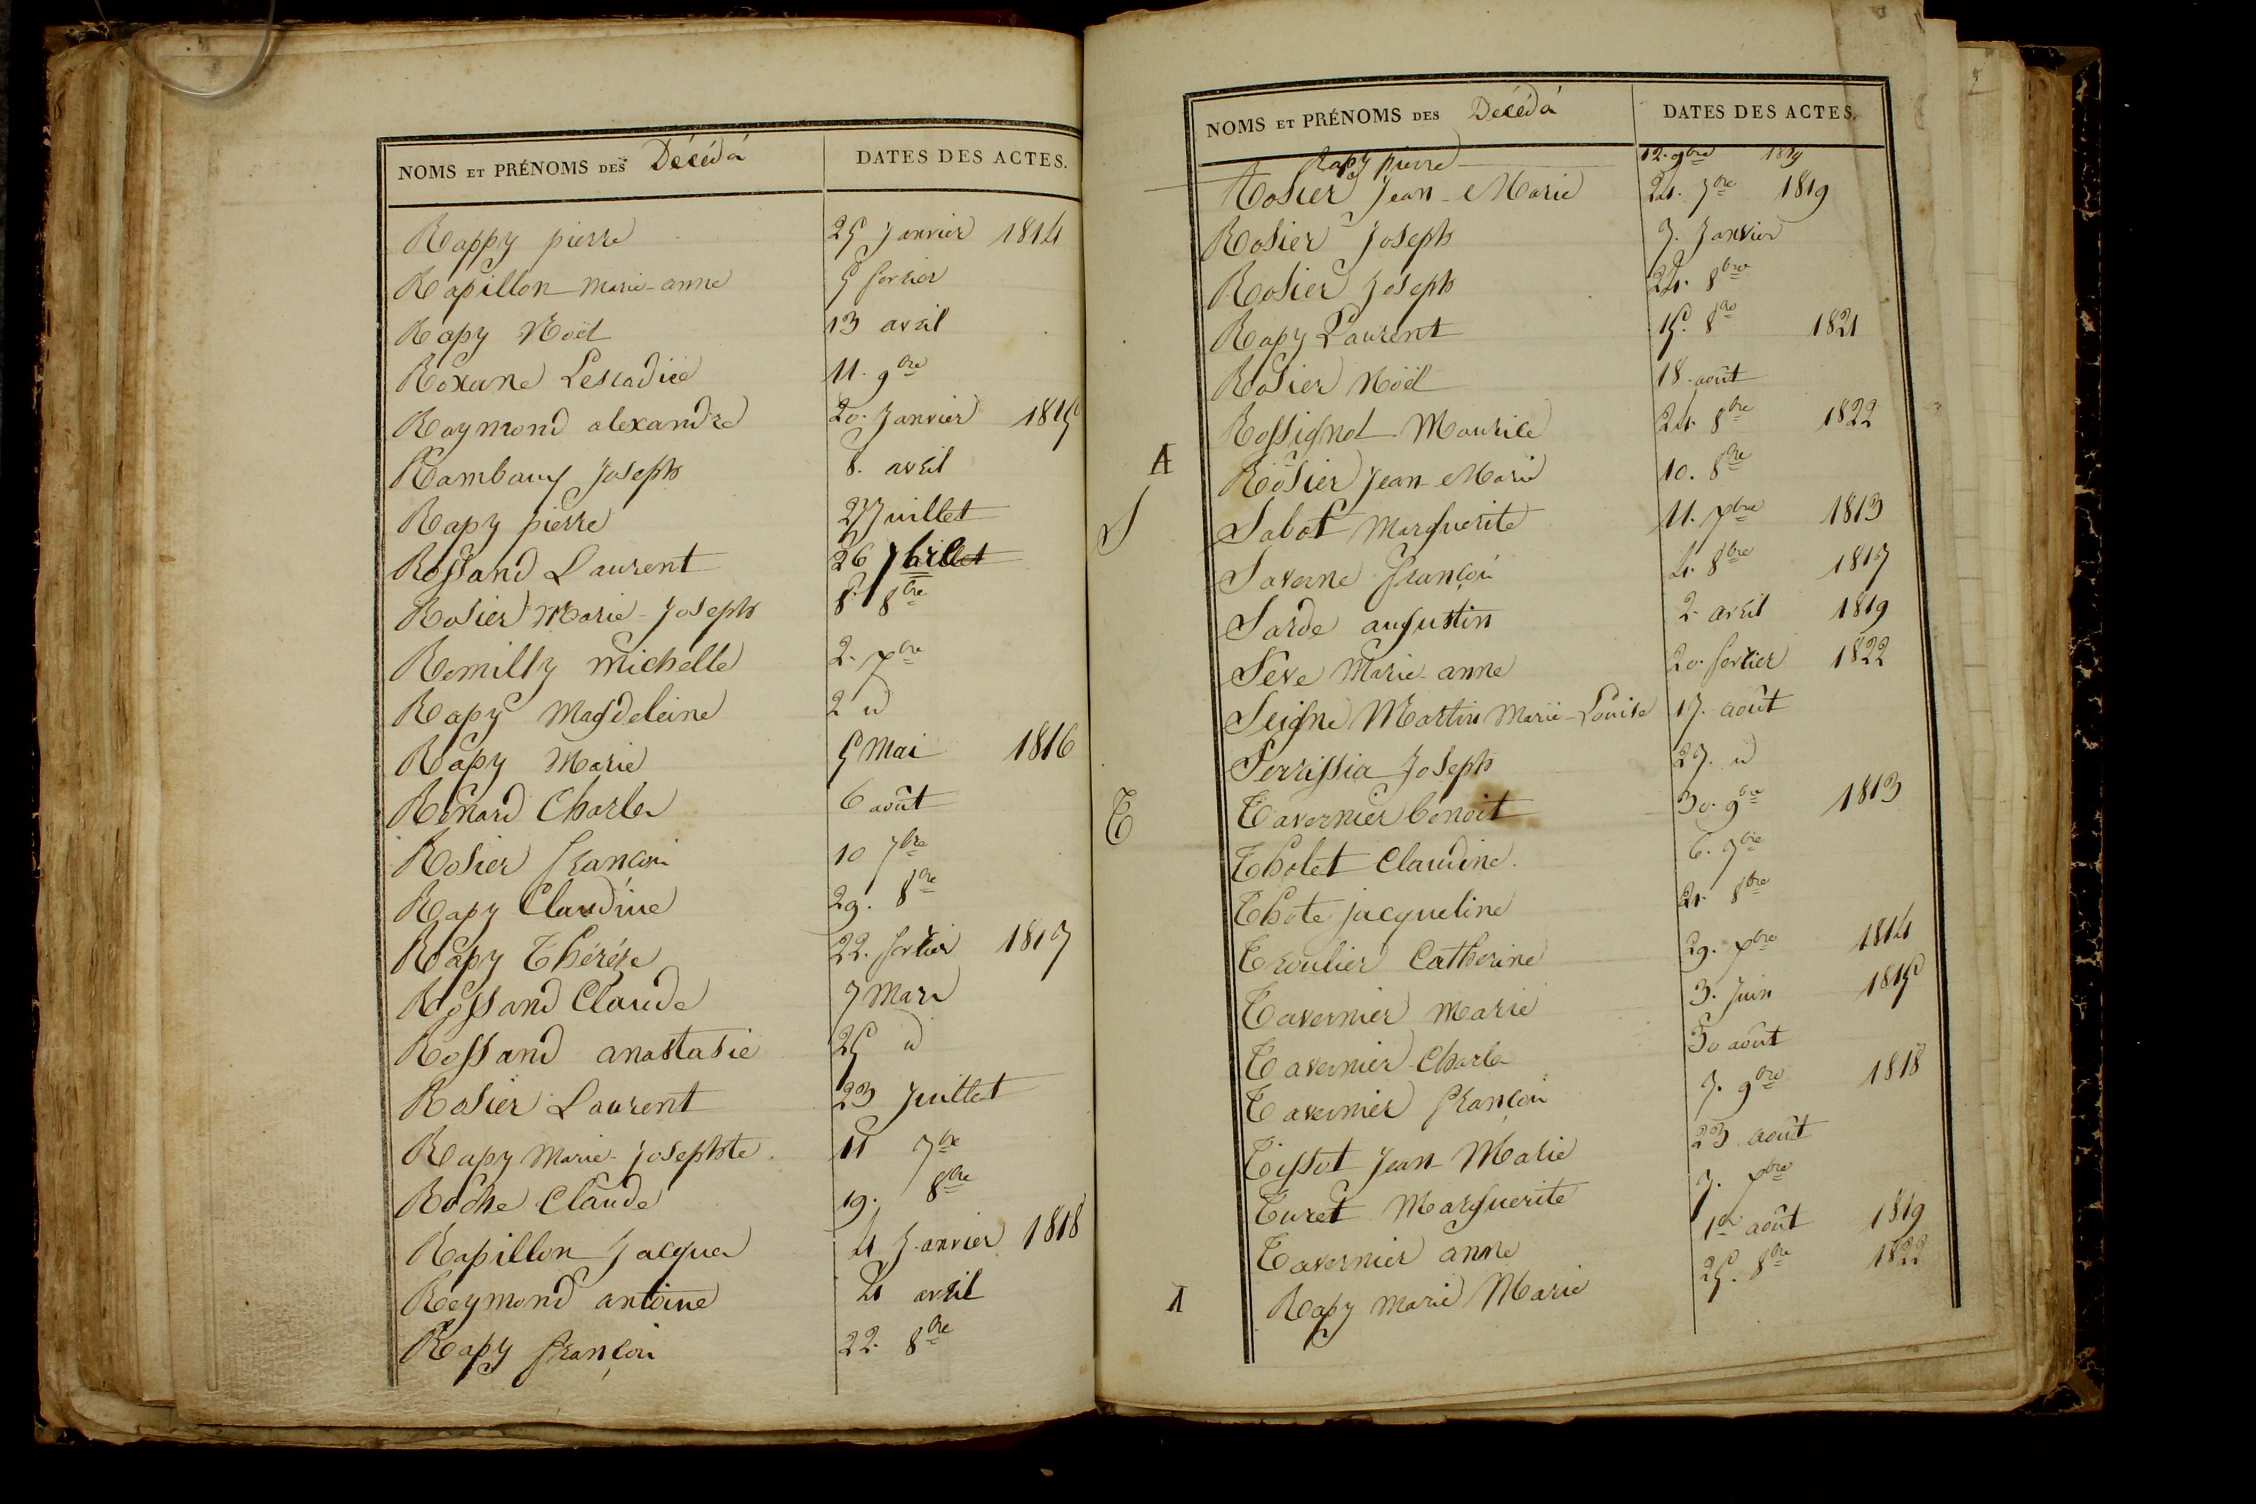 NOMS ET PRÉNOMS DES Décédés DATES DES ACTES.
Rappy pierre 25 Janvier 1814
Rapillon Marie-anne 5 fevrier
Rapy Noël 13 avril
Roxane Leocadie 11. 9bre
Raymond alexandre 20. Janvier 1815
Rambaux Joseph 8. avril
Rapy pierre 27 Juillet
Rossand Laurent 26
Rosier Marie-Joseph 8. 8bre
Romilly michelle 2. xbre
Rapy Magdeleine 2 id
Rapy Marie 5 Mai 1816
Renard Charles 6 août
Rosier françois 10 7bre
Rapy Claudine 29. 8bre
Rapy Thérése 22. fevrier 1817
Rossand Claude 7 Mars
Rossand anastasie 25 id
Rosier Laurent 23 Juillet
Rapy Marie-Josephte 11 7bre
Roche Claude 19. 8bre
Rapillon Jacques 4 Janvier 1818
Reymond antoine 4 avril
Rapy françois 22. 8bre
NOMS ET PRÉNOMS DES Décédés DATES DES ACTES.
Rapy pierre 12. 9bre 1819
Rosier Jean-Marie 24. 7bre 1819
Rosier Joseph 7. Janvier
Rosier Joseph 24. 8bre
Rapy Laurent 15. 8bre 1821
Rosier Noël 18. août
Rossignol Maurice 24. 8bre 1822
A Rosier Jean-Marie 10. 8bre
S Sabot Marguerite 11. xbre 1813
Saverne françois 4. 8bre 1817
Sarde augustin 2. avril 1819
Seve Marie-anne 20. fevrier 1822
Seigne Martin Marie-Louise 17. août
Serrissia Joseph 27. id
T Tavernier benoit 30. 9bre 1813
Tholet Claudine. 6. 7bre
Thote jacqueline 4. 8bre
Troulier Catherine 29. xbre 1814
Tavernier Marie 3. Juin 1815
Tavernier Charles 30 août
Tavernier françois 7. 9bre 1818
Tissot Jean-Marie 23 août
Turet Marguerite 7. xbre
Tavernier anne 1er août 1819
A Rapy Marie Marie 25. 8bre 1822